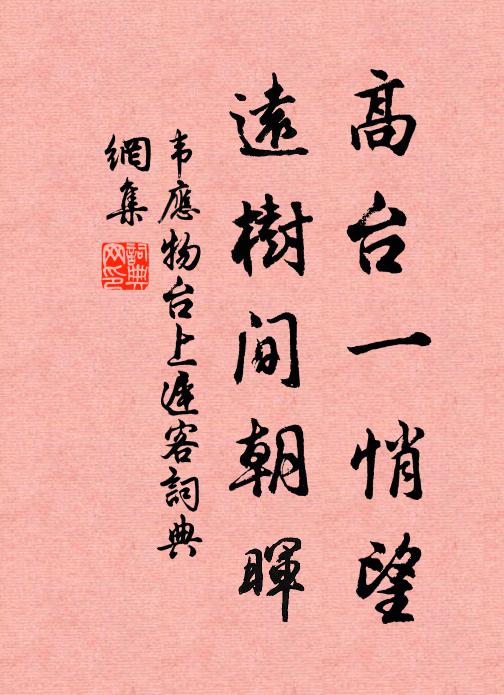 高台一悄望
遠樹間朝暉
韦應物台上遲客詞典
網集
詞典
网印